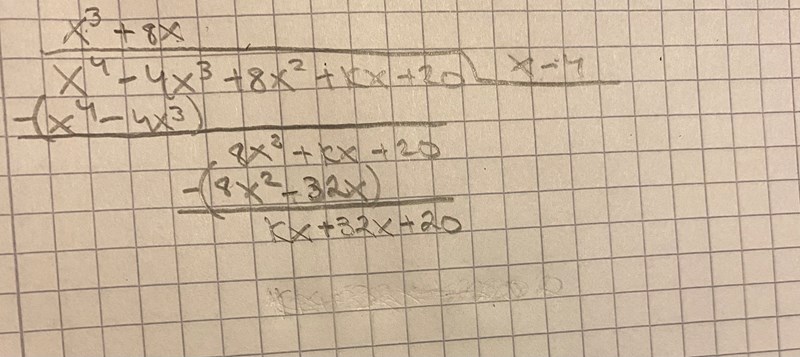 x³ + 8x
x⁴ - 4x³ + 8x² + kx + 20 x - 4
-(x⁴ - 4x³)
8x² + kx + 20
-(8x² - 32x)
kx + 32x + 20